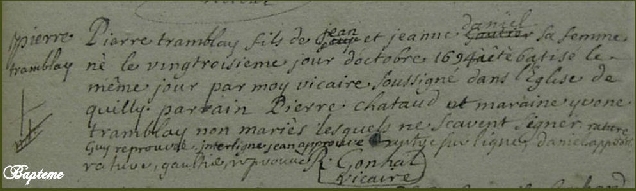 pierre
tramblay
Pierre tramblay fils de jean et jeanne daniel sa femme
né le vingtroisieme jour doctobre 1694 a eté batisé le
même jour par moy vicaire soussigné dans l'eglise de
quilly parrain Pierre chataud et maraine yvone
tramblay non mariés lesquels ne scavent signer rature
Guy reprouvé interligne jean approuvé ligne daniel
rature, gautier, repprouvé R. Gonhal
vicaire
Bapteme